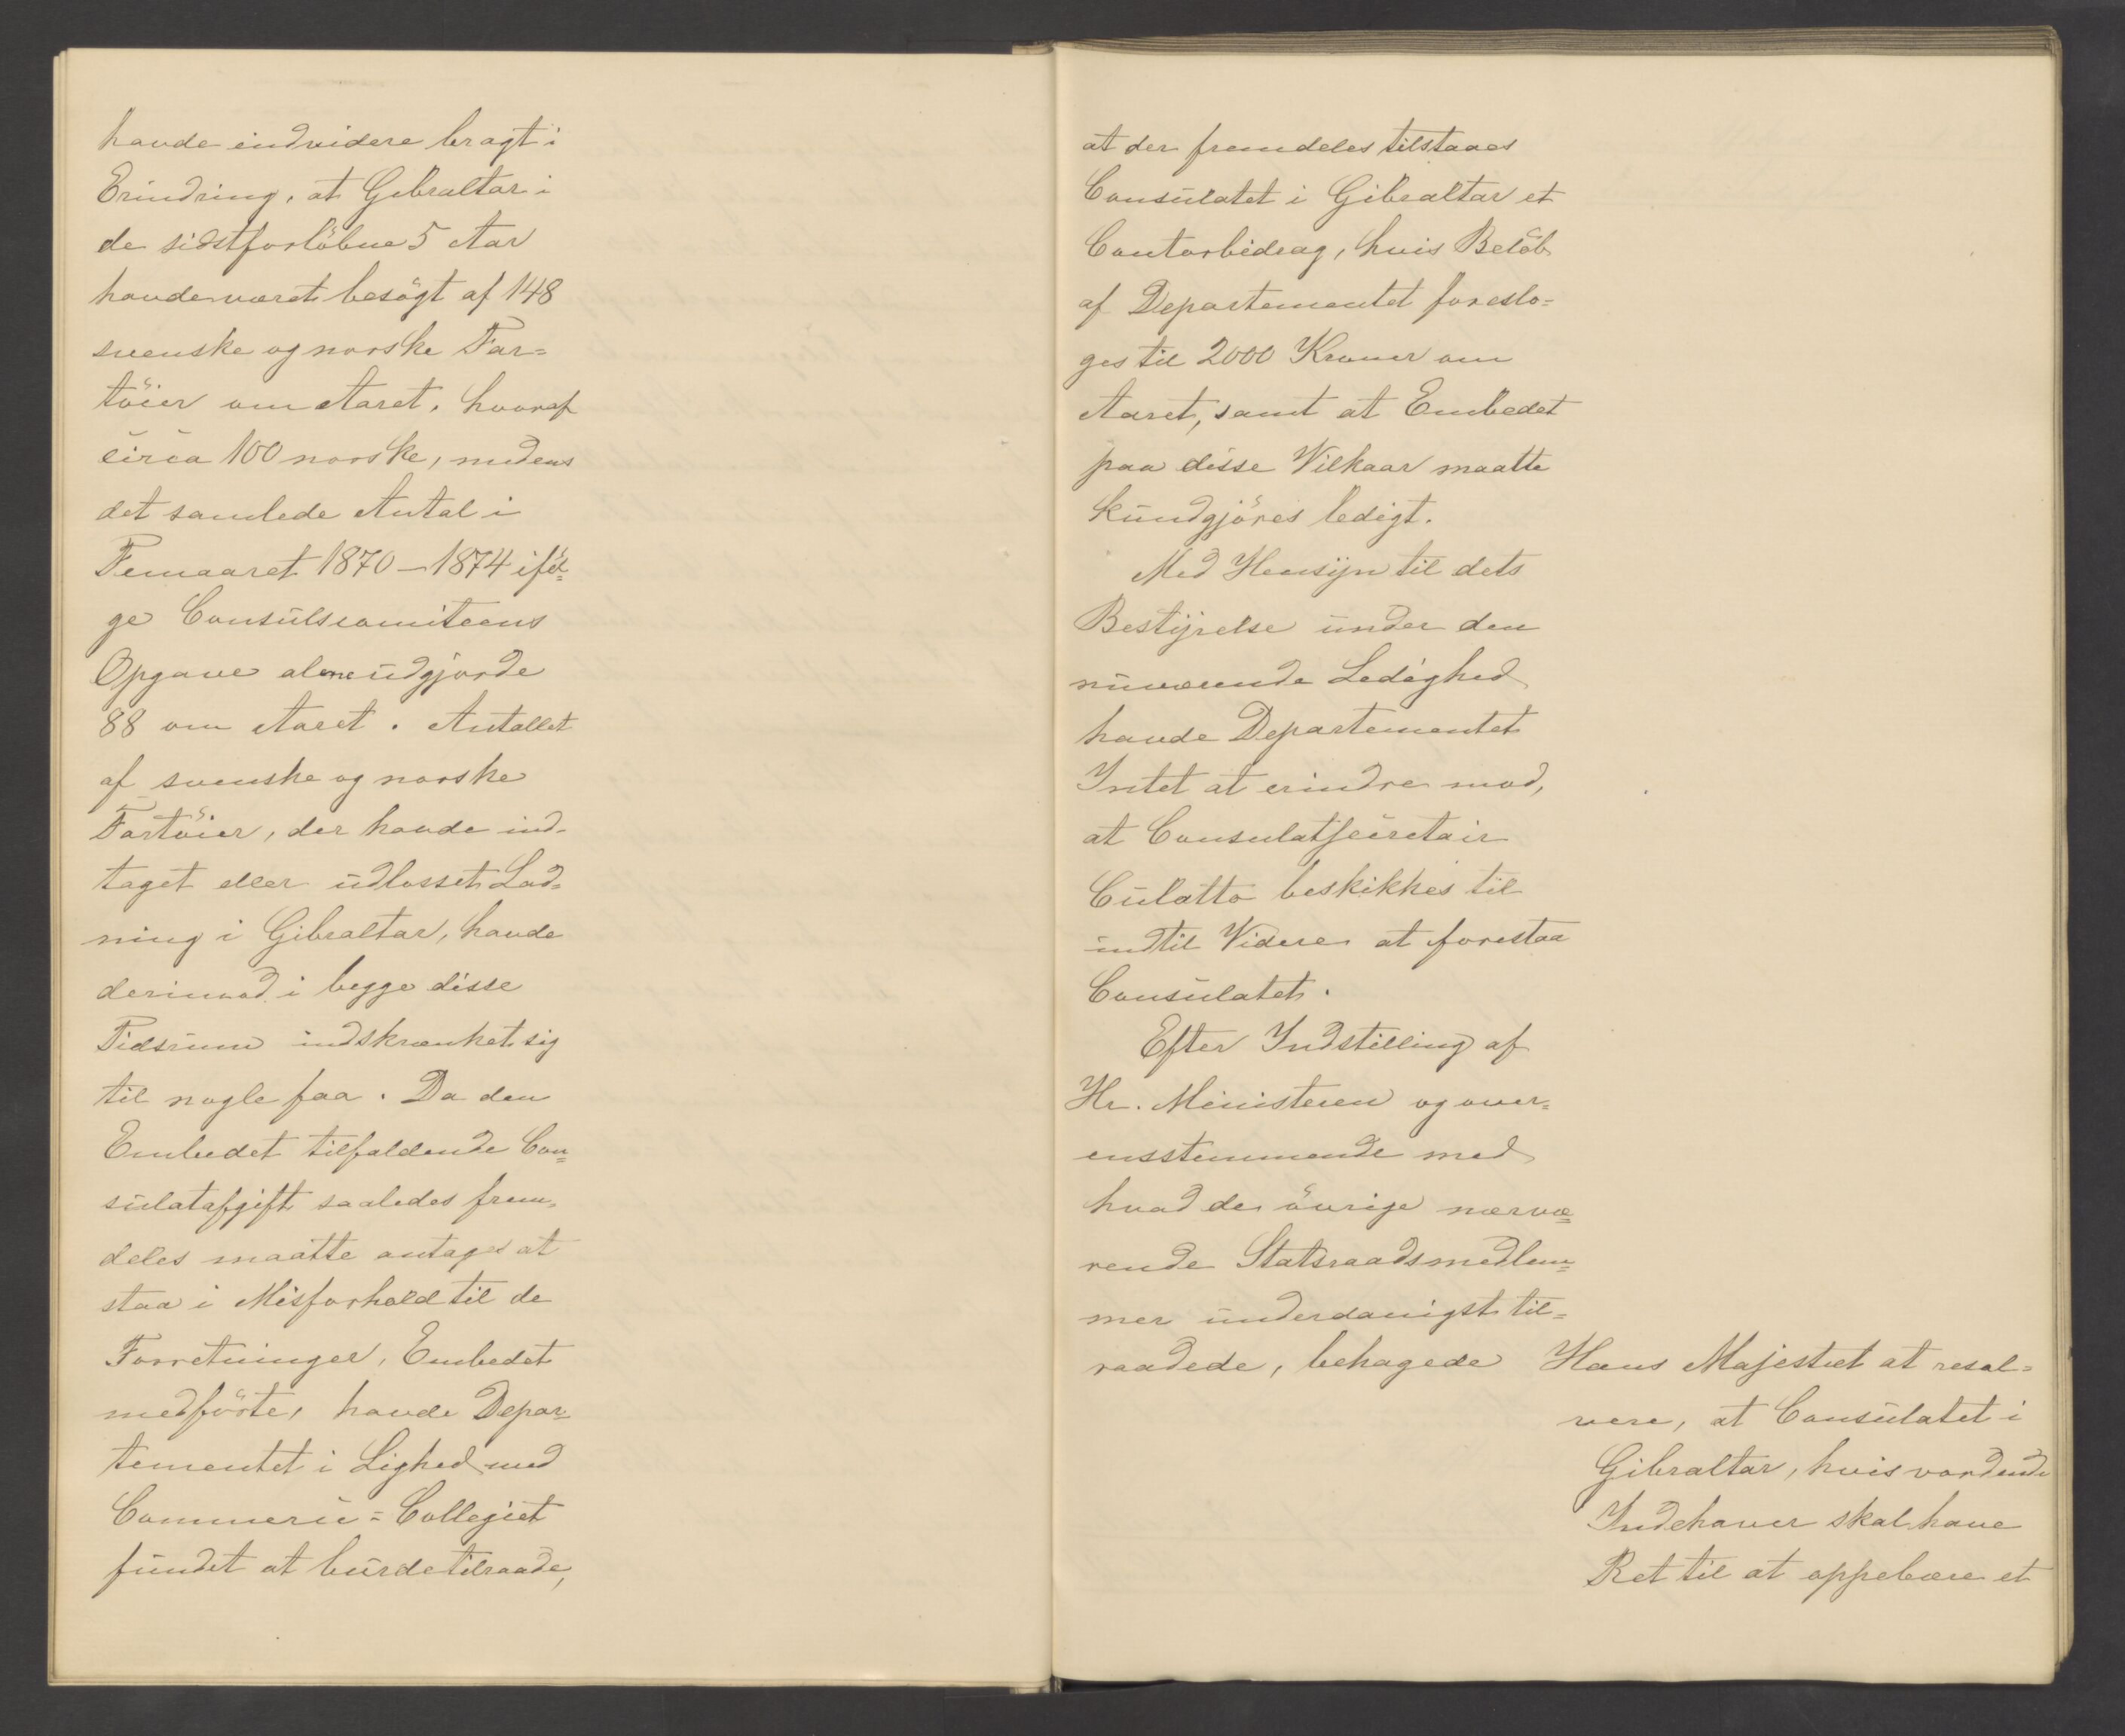 havde endvidere bragt i
Erindring, at Gibraltar i
de sidstforløbne 5 Aar
havde været besøgt af 148
svenske og norske Far=
tøier om Aaret, hvoraf
circa 100 norske, medens
det samlede Antal i
Femaaret 1870–1874 iføl=
ge Consulscomiteens
Opgave alene udgjorde
88 om Aaret. Antallet
af svenske og norske
Fartøier, der havde ind-
taget eller udlosset Lad=
ning i Gibraltar, havde
derimod i begge disse
Tidsrum indskrænket sig
til nogle faa. Da den
Embedet tilfaldende Con=
sulatafgift saaledes frem=
deles maatte antages at
staa i Misforhold til de
Forretninger, Embedet
medførte, havde Depar=
tementet i Lighed med
Commerce=Collegiet
fundet at burde tilraade,
at der fremdeles tilstaaes
Consulatet i Gibraltar et
Contorbidrag, hvis Beløb
af Departementet foreslo=
ges til 2000 Kroner om
Aaret, samt at Embedet
paa disse Vilkaar maatte
kundgjøres ledigt.
Med Hensyn til dets
Bestyrelse under den
nuværende Ledighed
havde Departementet
Intet at erindre mod,
at Consulatsecretair
Culatto beskikkes til
indtil Videre at forestaa
Consulatet.
Efter Indstilling af
Hr. Ministeren og over=
ensstemmende med
hvad de øvrige nærvæ=
rende Statsraadsmedlem=
mer underdanigst til=
raadede, behagede Hans Majestæt at resol=
vere, at Consulatet i
Gibraltar, hvis vordende
Indehaver skal have
Ret til at oppebære et